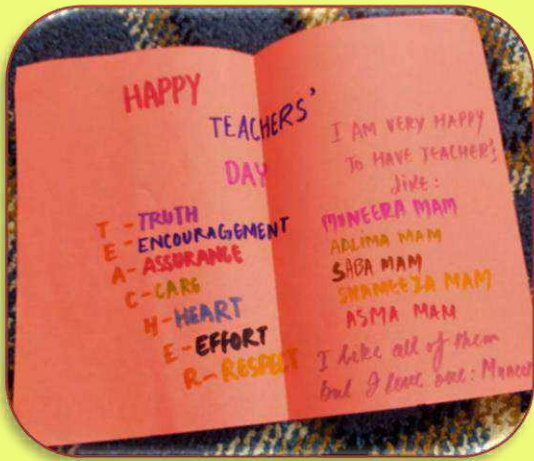 HAPPY
TEACHERS'
DAY
T - TRUTH
E - ENCOURAGEMENT
A - ASSURANCE
C - CARE
H - HEART
E - EFFORT
R - RESPECT
I AM VERY HAPPY
TO HAVE TEACHER'S
like:
MUNEERA MAM
ADLIMA MAM
SABA MAM
SHANEEZA MAM
ASMA MAM
I like all of them
but I love one: Muneer